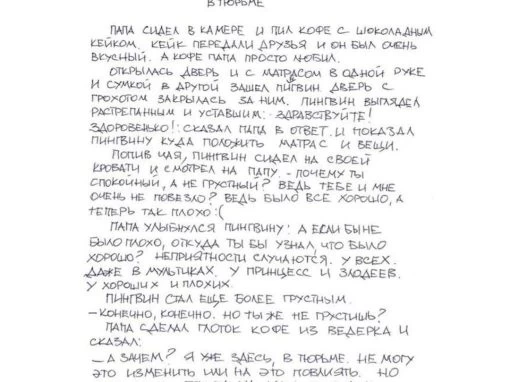 В ТЮРЬМЕ
ПАПА СИДЕЛ В КАМЕРЕ И ПИЛ КОФЕ С ШОКОЛАДНЫМ
КЕЙКОМ. КЕЙК ПЕРЕДАЛИ ДРУЗЬЯ И ОН БЫЛ ОЧЕНЬ
ВКУСНЫЙ. А КОФЕ ПАПА ПРОСТО ЛЮБИЛ.
ОТКРЫЛАСЬ ДВЕРЬ И С МАТРАСОМ В ОДНОЙ РУКЕ
И СУМКОЙ В ДРУГОЙ ЗАШЕЛ ПИГВИН. ДВЕРЬ С
ГРОХОТОМ ЗАКРЫЛАСЬ ЗА НИМ. ПИНГВИН ВЫГЛЯДЕЛ
РАСТРЕПАННЫМ И УСТАВШИМ. - ЗДРАВСТВУЙТЕ!
ЗДОРОВЕНЬКО! - СКАЗАЛ ПАПА В ОТВЕТ. И ПОКАЗАЛ
ПИНГВИНУ КУДА ПОЛОЖИТЬ МАТРАС И ВЕЩИ.
ПОПИВ ЧАЯ, ПИНГВИН СИДЕЛ НА СВОЕЙ
КРОВАТИ И СМОТРЕЛ НА ПАПУ. - ПОЧЕМУ ТЫ
СПОКОЙНЫЙ, А НЕ ГРУСТНЫЙ? ВЕДЬ ТЕБЕ И МНЕ
ОЧЕНЬ НЕ ПОВЕЗЛО? ВЕДЬ БЫЛО ВСЕ ХОРОШО, А
ТЕПЕРЬ ТАК ПЛОХО :(
ПАПА УЛЫБНУЛСЯ ПИНГВИНУ: А ЕСЛИ БЫ НЕ
БЫЛО ПЛОХО, ОТКУДА ТЫ БЫ УЗНАЛ, ЧТО БЫЛО
ХОРОШО? НЕПРИЯТНОСТИ СЛУЧАЮТСЯ. У ВСЕХ.
ДАЖЕ В МУЛЬТИКАХ. У ПРИНЦЕСС И ЗЛОДЕЕВ.
У ХОРОШИХ И ПЛОХИХ.
ПИНГВИН СТАЛ ЕЩЕ БОЛЕЕ ГРУСТНЫМ.
- КОНЕЧНО, КОНЕЧНО. НО ТЫ ЖЕ НЕ ГРУСТИШЬ?
ПАПА СДЕЛАЛ ГЛОТОК КОФЕ ИЗ ВЕДЕРКА И
СКАЗАЛ:
- А ЗАЧЕМ? Я УЖЕ ЗДЕСЬ, В ТЮРЬМЕ. НЕ МОГУ
ЭТО ИЗМЕНИТЬ ИЛИ НА ЭТО ПОВЛИЯТЬ. НО